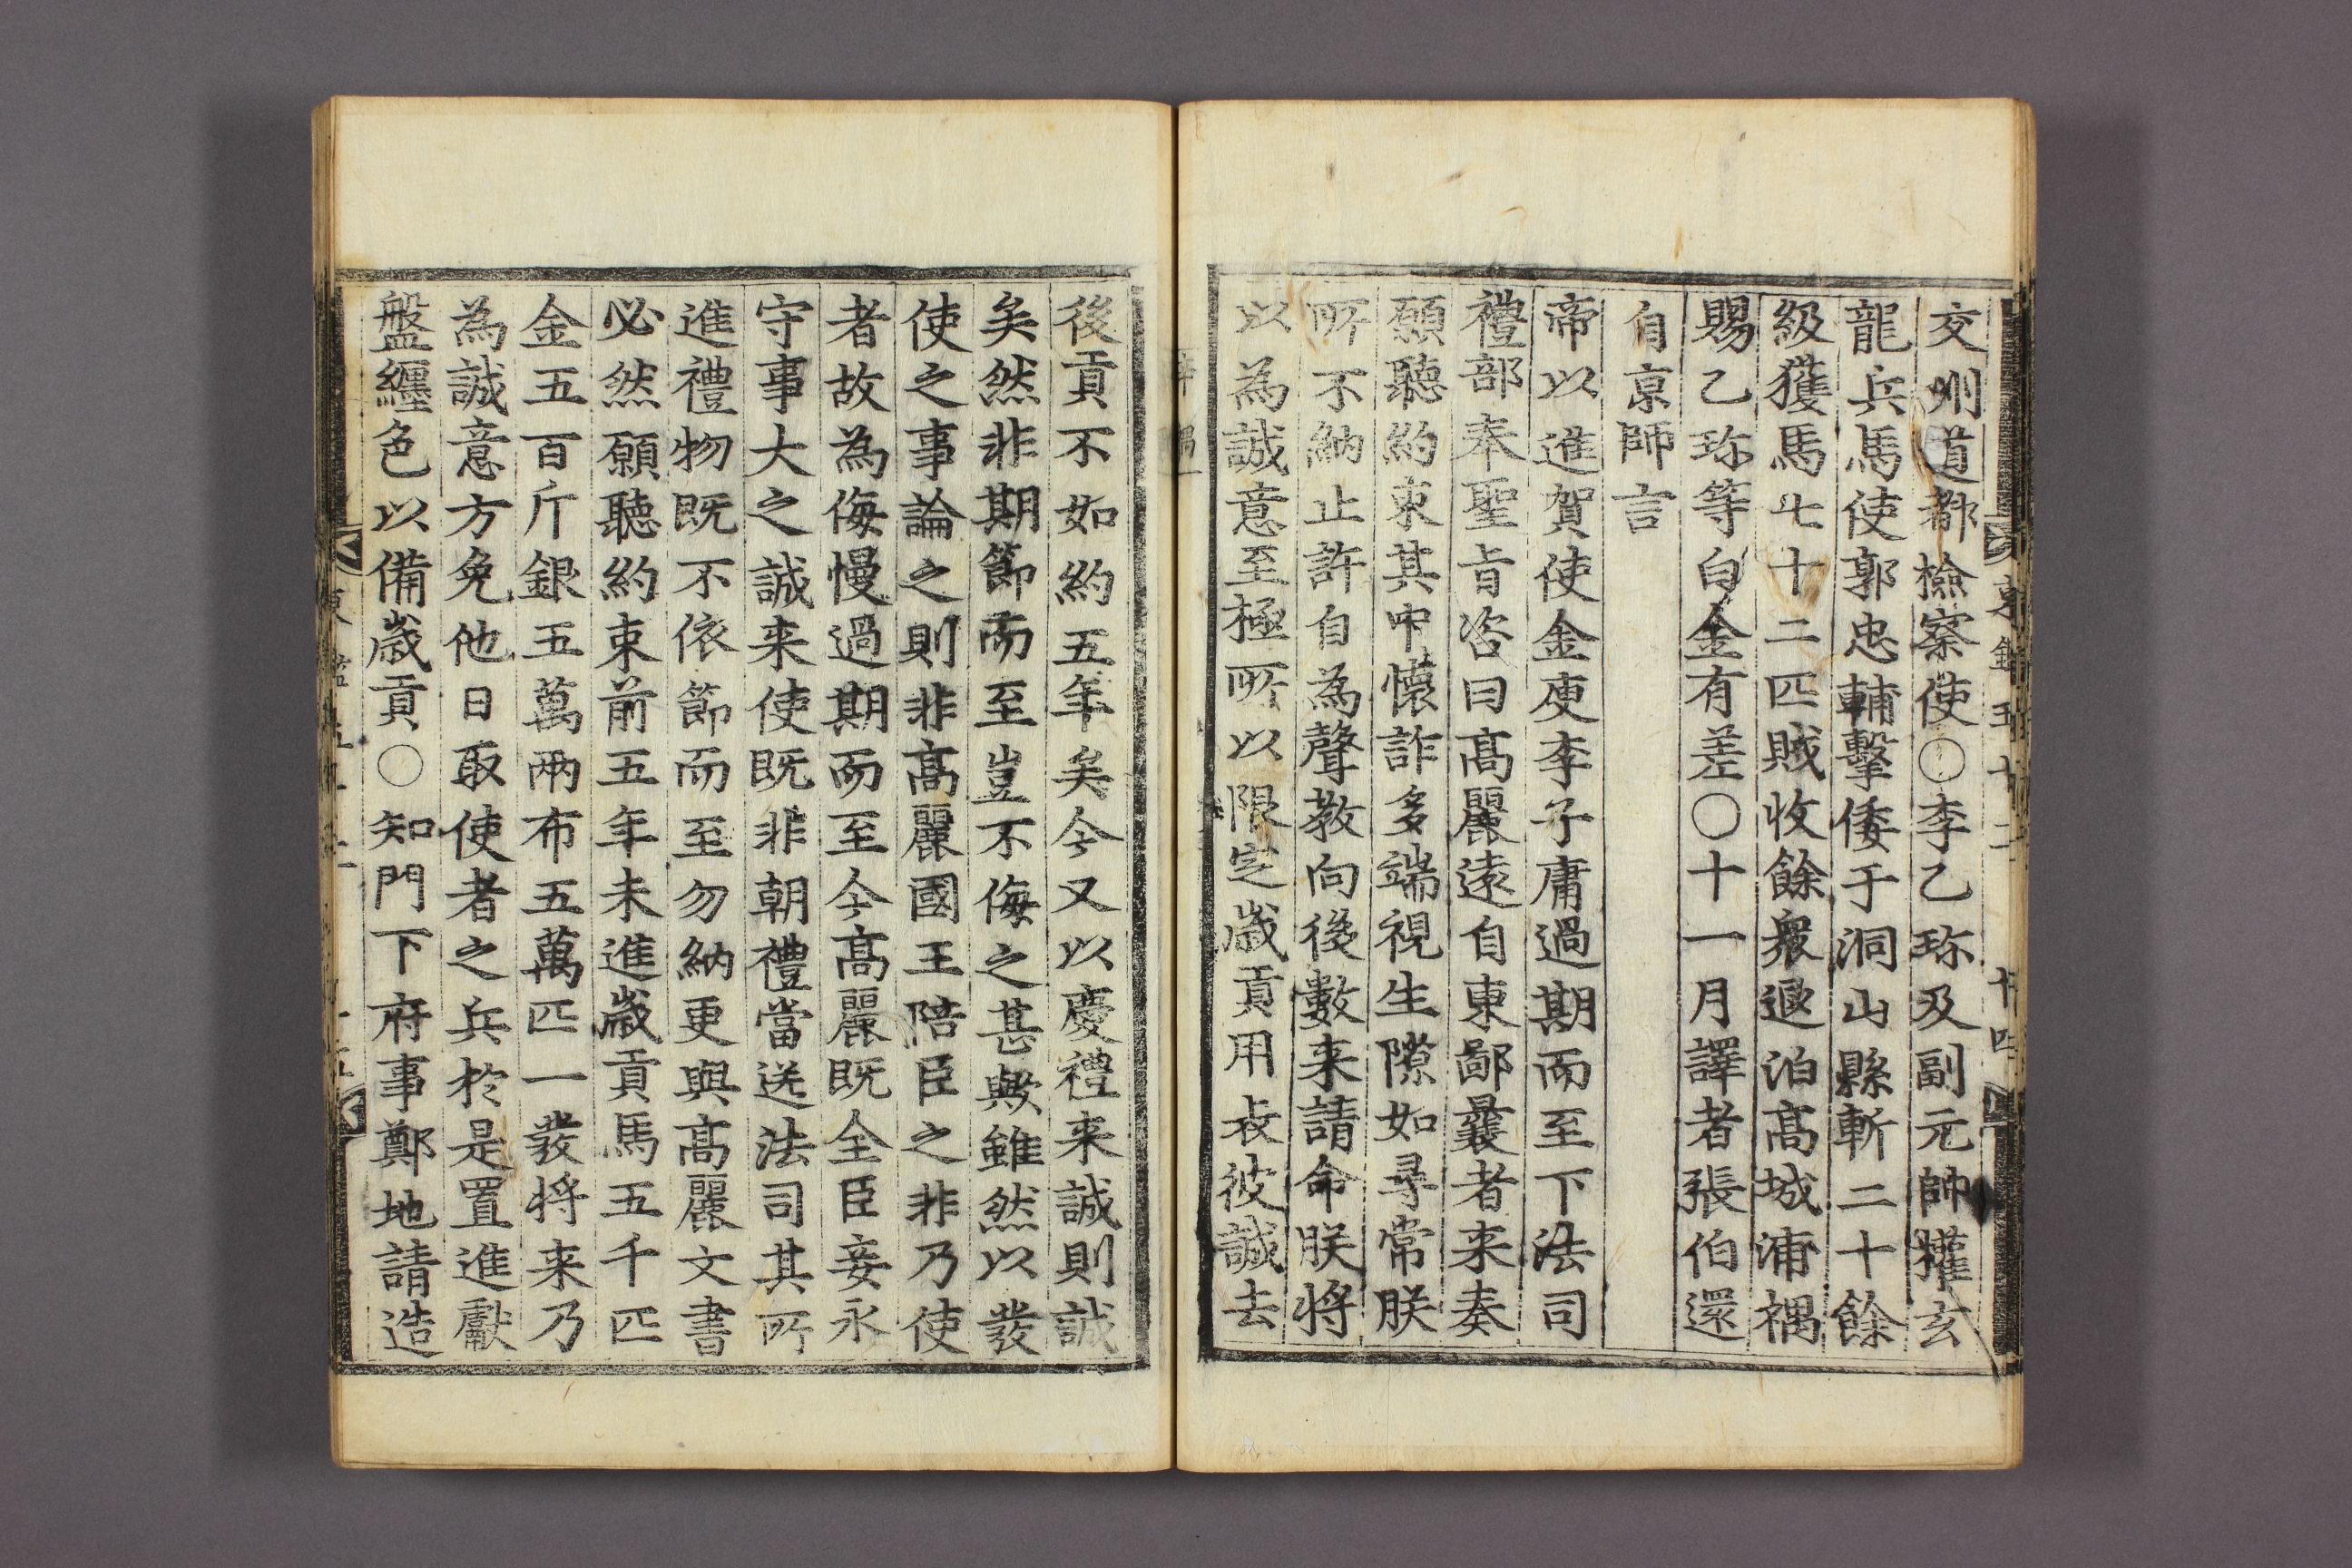 交州道都檢察使○李乙珎及副元帥權玄
龍兵馬使郭忠輔擊倭于洞山縣斬二十餘
級獲馬七十二匹賊收餘衆退泊高城浦禑
賜乙珎等白金有差○十一月譯者張伯還
自京師言
帝以進賀使金庾李子庸過期而至下法司
禮部奉聖旨咨曰高麗遠自東鄙曩者来奏
願聽約束其中懷詐多端視生隙如尋常朕
所不納止許自為聲教向後數来請命朕將
以為誠意至極所以限定歲貢用表彼誠去
後貢不如約五年矣今又以慶禮来誠則誠
矣然非期節而至豈不侮之甚歟雖然以發
使之事論之則非高麗國王陪臣之非乃使
者故為侮慢過期而至今高麗既全臣妾永
守事大之誠来使既非朝禮當送法司其所
進禮物既不依節而至勿納更與高麗文書
必然願聽約束前五年未進歲貢馬五千匹
金五百斤銀五萬兩布五萬匹一發將来乃
為誠意方免他日取使者之兵於是置進獻
盤纏色以備歲貢○知門下府事鄭地請造
東鑑五十二
十四